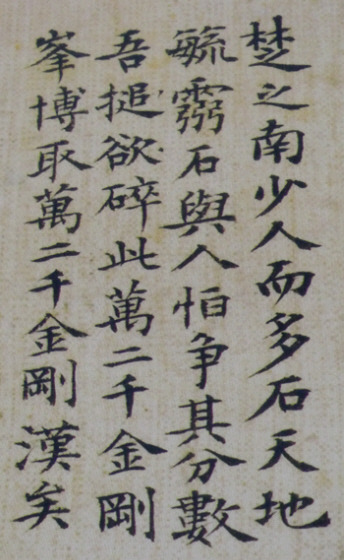 楚之南少人而多石天地
毓靈石與人怕争其分數
吾搥欲碎此萬二千金剛
峯博取萬二千金剛漢矣